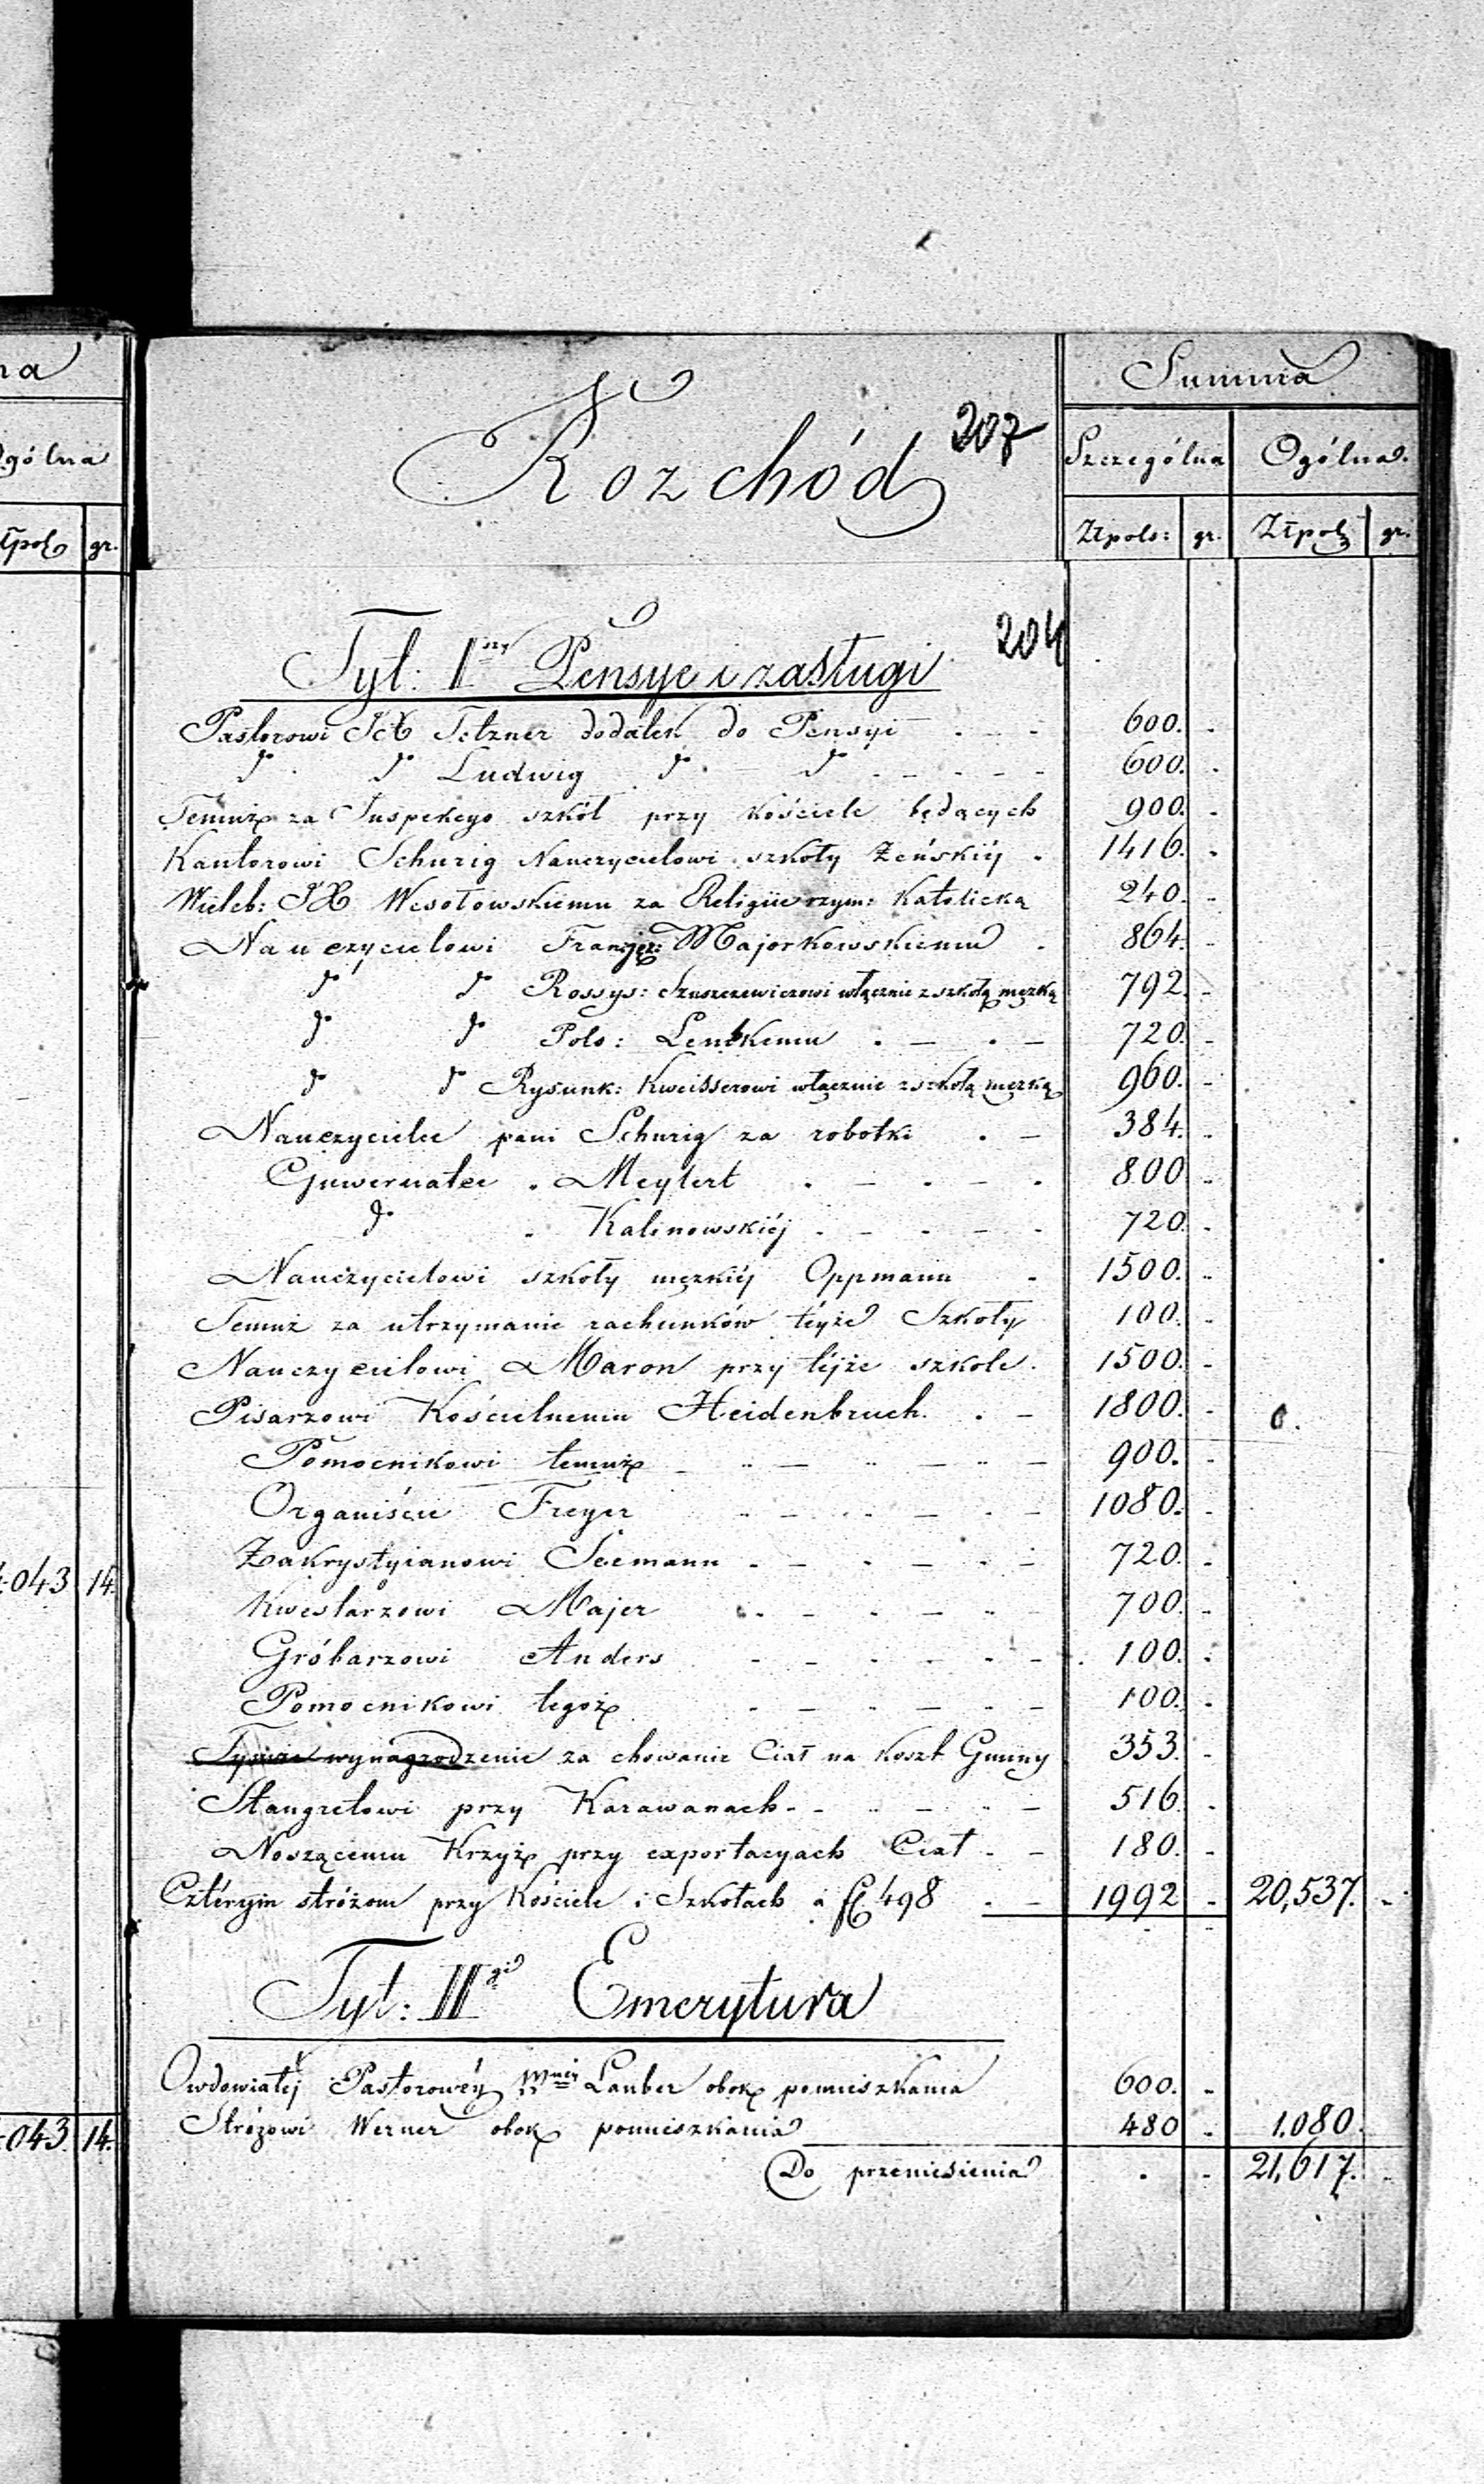 na
Ogólna
Złpol gr.
Rozchód
207
Summa
Szczególna Ogólna.
Złpols: gr. Złpol gr.
Tyt: I Pensye i zasługi
204
Pastorowi JX Tetzner dodatek do Pensyi 600.
d° d° Ludwig d° d° 600.
Temuż za Inspekcyo szkół przy kościele będących 900.
Kantorowi Schurig Nauczycielowi szkoły Żeńskiéj 1416.
Wieleb: JX Wesołowskiemu za Religiie rzym: Katolicką 240.
Nauczycielowi Francyz: Majorkowskiemu 864.
d° d° Rossys: Szuszczewiczowi włącznie z szkołą męzką 792.
d° d° Pols: Lentkemu 720.
d° d° Rysunk: Kweisserowi włącznie z szkołą męzką 960.
Nauczycielce pani Schurig za robotki 384.
Guwernatce Meylert 800
d° Kalinowskiéj 720.
Nauczycielowi szkoły męzkiéj Oppmann 1500.
Temuż za utrzymanie rachunków téyże Szkoły 100.
Nauczycielowi Maron przy téjże szkole. 1500.
Pisarzowi Kościelnemu Heidenbruch 1800.
Pomocnikowi temuż 900.
Organiście Freyer 1080.
Zakrystyianowi Seemann 720.
043 14.
Kwestarzowi Majer 700.
Gróbarzowi Anders 100.
Pomocnikowi tegoż 100.
Tymże wynagrodzenie za chowanie Ciał na koszt Gminy 353.
Stangretowi przy Karawanach 516.
Noszącemu Krzyż przy exportacyach Ciał 180.
Cztérym stróżom przy Kościele i Szkołach a fl 498 1992 20,537.
Tyt: II gi Emerytura
Owdowiałéj Pastorowéy Lauber obok pomieszkania 600.
Stróżowi Werner obok pomieszkania 480 1.080.
043. 14.
Do przeniesienia 21,617.